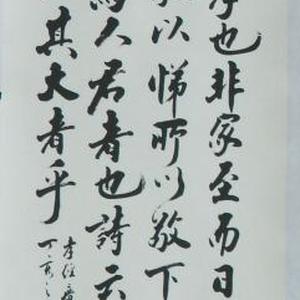 孝也非家至而日
以悌所以敬下
為人君者也詩云
其大者乎
孝經
丁亥之